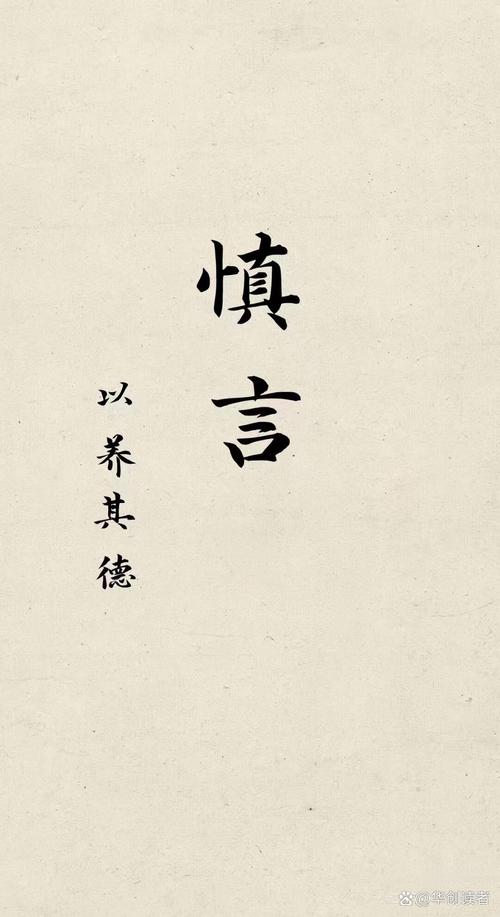 慎言
以养其德
@华创读者